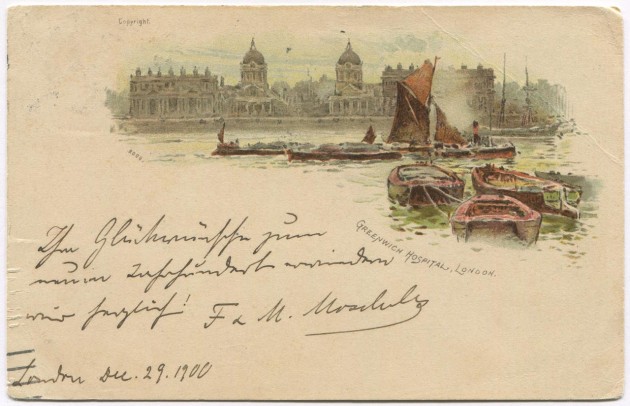 Copyright.
GREENWICH HOSPITAL, LONDON.
Ihre Glückwünsche zum
neuen Jahrhundert erwiedern
wir herzlich! F & M. Moscheles
London Dec. 29. 1900